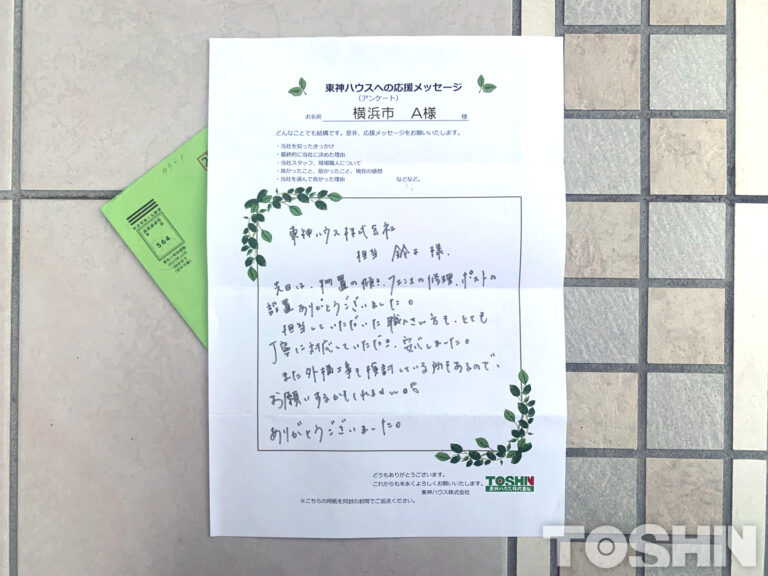 東神ハウスへの応援メッセージ
(アンケート)
お名前 横浜市 A様 様
どんなことでも結構です。是非、応援メッセージをお願いいたします。
・当社を知ったきっかけ
・最終的に当社に決めた理由
・当社スタッフ、現場職人について
・良かったこと、助かったこと、現在の感想
・当社を選んで良かった理由 などなど。
東神ハウス株式会社
担当 鈴木 様.
先日は、物置の傾き、フェンスの修理、ポストの
設置ありがとうございました。
担当していただいた職人さん方も、とても
丁寧に対応していただき、安心しました。
また外構工事も検討している所もあるので、
お願いするかもしれません。
ありがとうございました。
どうもありがとうございます。
これからも末永くよろしくお願いいたします。
東神ハウス株式会社
TOSHIN
東神ハウス株式会社
※こちらの用紙を同封の封筒でご返送ください。
564
TOSHIN